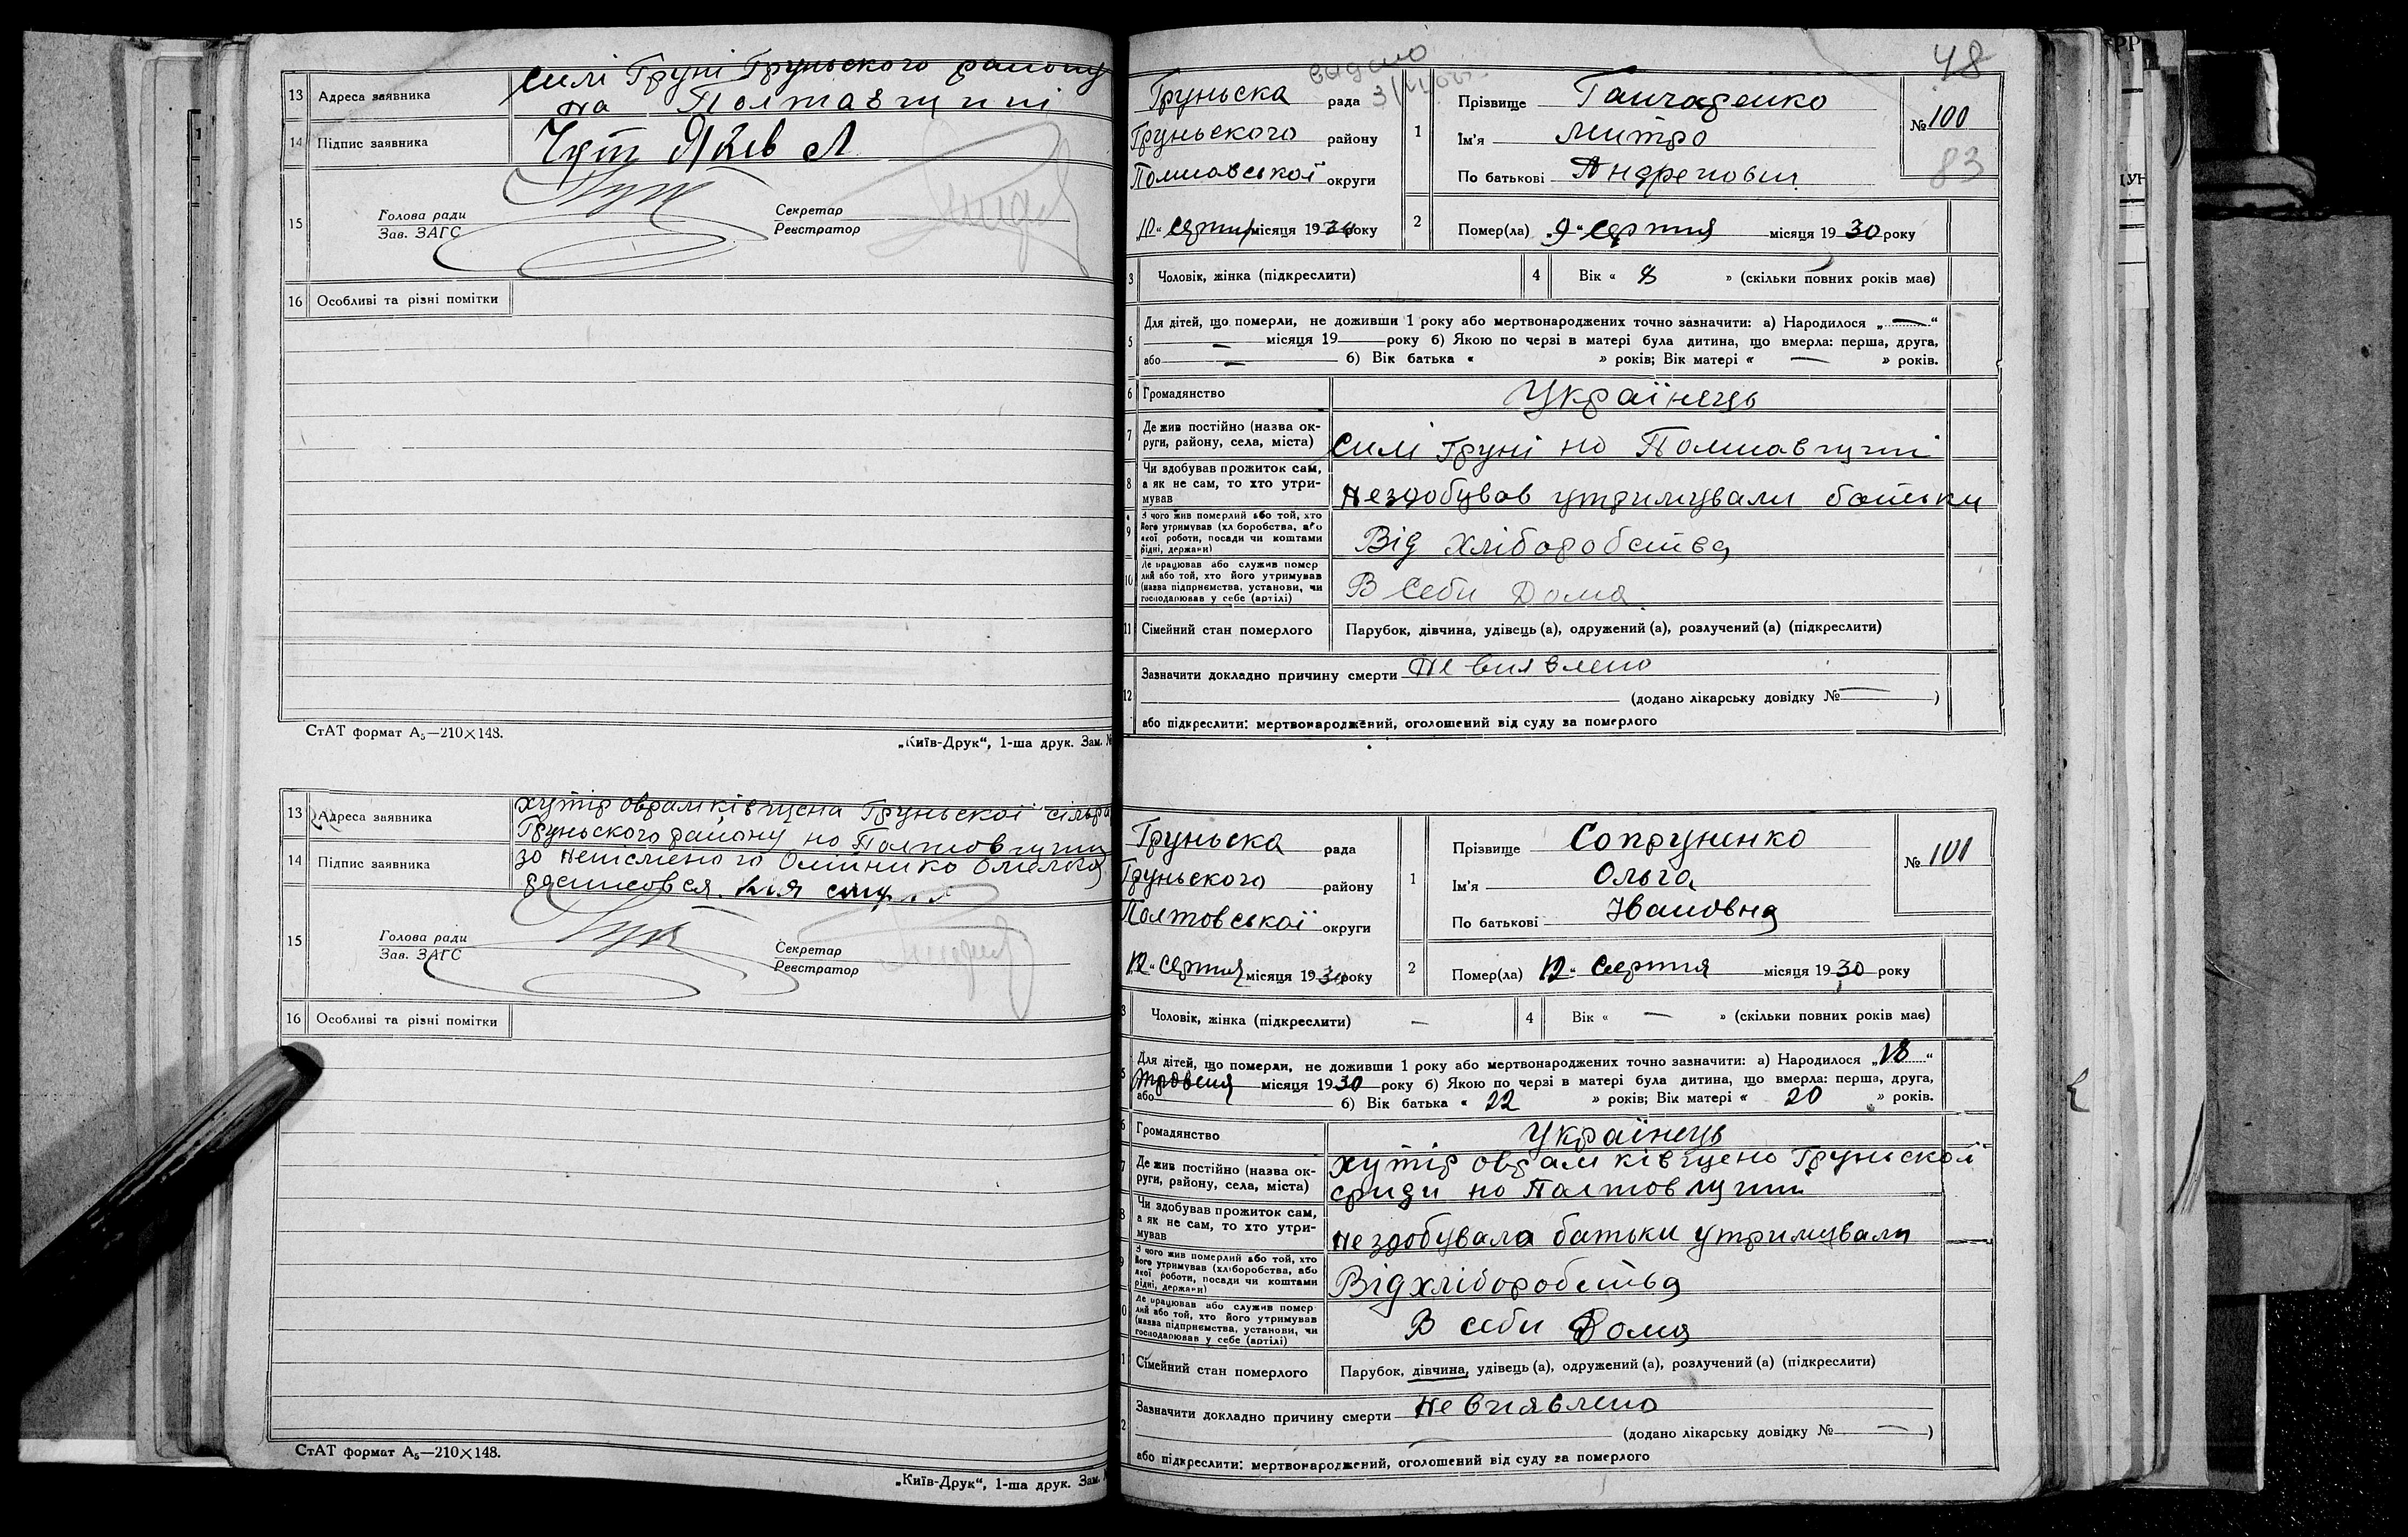 13 Адреса заявника силі Груні Груньского району
на Полтавщині
14 Підпис заявника Яків
15 Голова ради
Зав. ЗАГС
Секретар
Реєстратор
16 Особливі та різні помітки
СтАТ формат А₅—210×148.
„Київ-Друк“, 1-ша друк. Зам. №
13 Адреса заявника хутір Груньскої
Груньского району но Полтовщині
14 Підпис заявника зо неписменого
росписовся
15 Голова ради
Зав. ЗАГС
Секретар
Реєстратор
16 Особливі та різні помітки
СтАТ формат А₅—210×148.
„Київ-Друк“, 1-ша друк. Зам.
48
видано
Груньска рада
Груньского району
Полтавської округи
„12“ серпня місяця 1930 року
1 Прізвище Гончаренко
Ім'я Митро
По батькові Андрейович
№ 100
83
2 Помер(ла) „9“ серпня місяця 1930 року
3 Чоловік, жінка (підкреслити)
4 Вік « 8 » (скільки повних років має)
5 Для дітей, що померли, не доживши 1 року або мертвонароджених точно зазначити: а) Народилося „—“
— місяця 19 — року б) Якою по черзі в матері була дитина, що вмерла: перша, друга,
або — б) Вік батька « » років; Вік матері « — » років.
6 Громадянство Українець
7 Де жив постійно (назва округи, району, села, міста) силі Груні но Полтавщині
8 Чи здобував прожиток сам,
а як не сам, то хто утри-
мував нездобував утримували батьки
9 З чого жив померлий або той, хто
його утримував (хліборобства, або
якої роботи, посади чи коштами
рідні, держави) Від хліборобства
10 Де працював або служив помер
лий або той, хто його утримував
(назва підприємства, установи, чи
господарював у себе (артілі) В себи Дома
11 Сімейний стан померлого Парубок, дівчина, удівець (а), одружений (а), розлучений (а) (підкреслити)
12 Зазначити докладно причину смерти Не виявлено
(додано лікарську довідку № — )
або підкреслити: мертвонароджений, оголошений від суду за померлого
Груньска рада
Груньского району
Полтовської округи
12“ серпня місяця 1930 року
1 Прізвище Сопруненко
Ім'я Ольга
По батькові Івановна
№ 101
2 Помер(ла) 12“ серпня місяця 1930 року
3 Чоловік, жінка (підкреслити) —
4 Вік « — » (скільки повних років має)
5 Для дітей, що померли, не доживши 1 року або мертвонароджених точно зазначити: а) Народилося „18“
травня місяця 1930 року б) Якою по черзі в матері була дитина, що вмерла: перша, друга,
або б) Вік батька « 22 » років; Вік матері « 20 » років.
6 Громадянство Українець
7 Де жив постійно (назва ок-
руги, району, села, міста) хутір Груньскої
сради но Полтовщині
8 Чи здобував прожиток сам,
а як не сам, то хто утри-
мував не здобувала батьки утримували
9 З чого жив померлий або той, хто
його утримував (хліборобства, або
якої роботи, посади чи коштами
рідні, держави) Від хліборобства
10 Де працював або служив помер
лий або той, хто його утримував
(назва підприємства, установи, чи
господарював у себе (артілі) В себи Дома
11 Сімейний стан померлого Парубок, дівчина, удівець (а), одружений (а), розлучений (а) (підкреслити)
12 Зазначити докладно причину смерти Не виявлено
(додано лікарську довідку № — )
або підкреслити: мертвонароджений, оголошений від суду за померлого